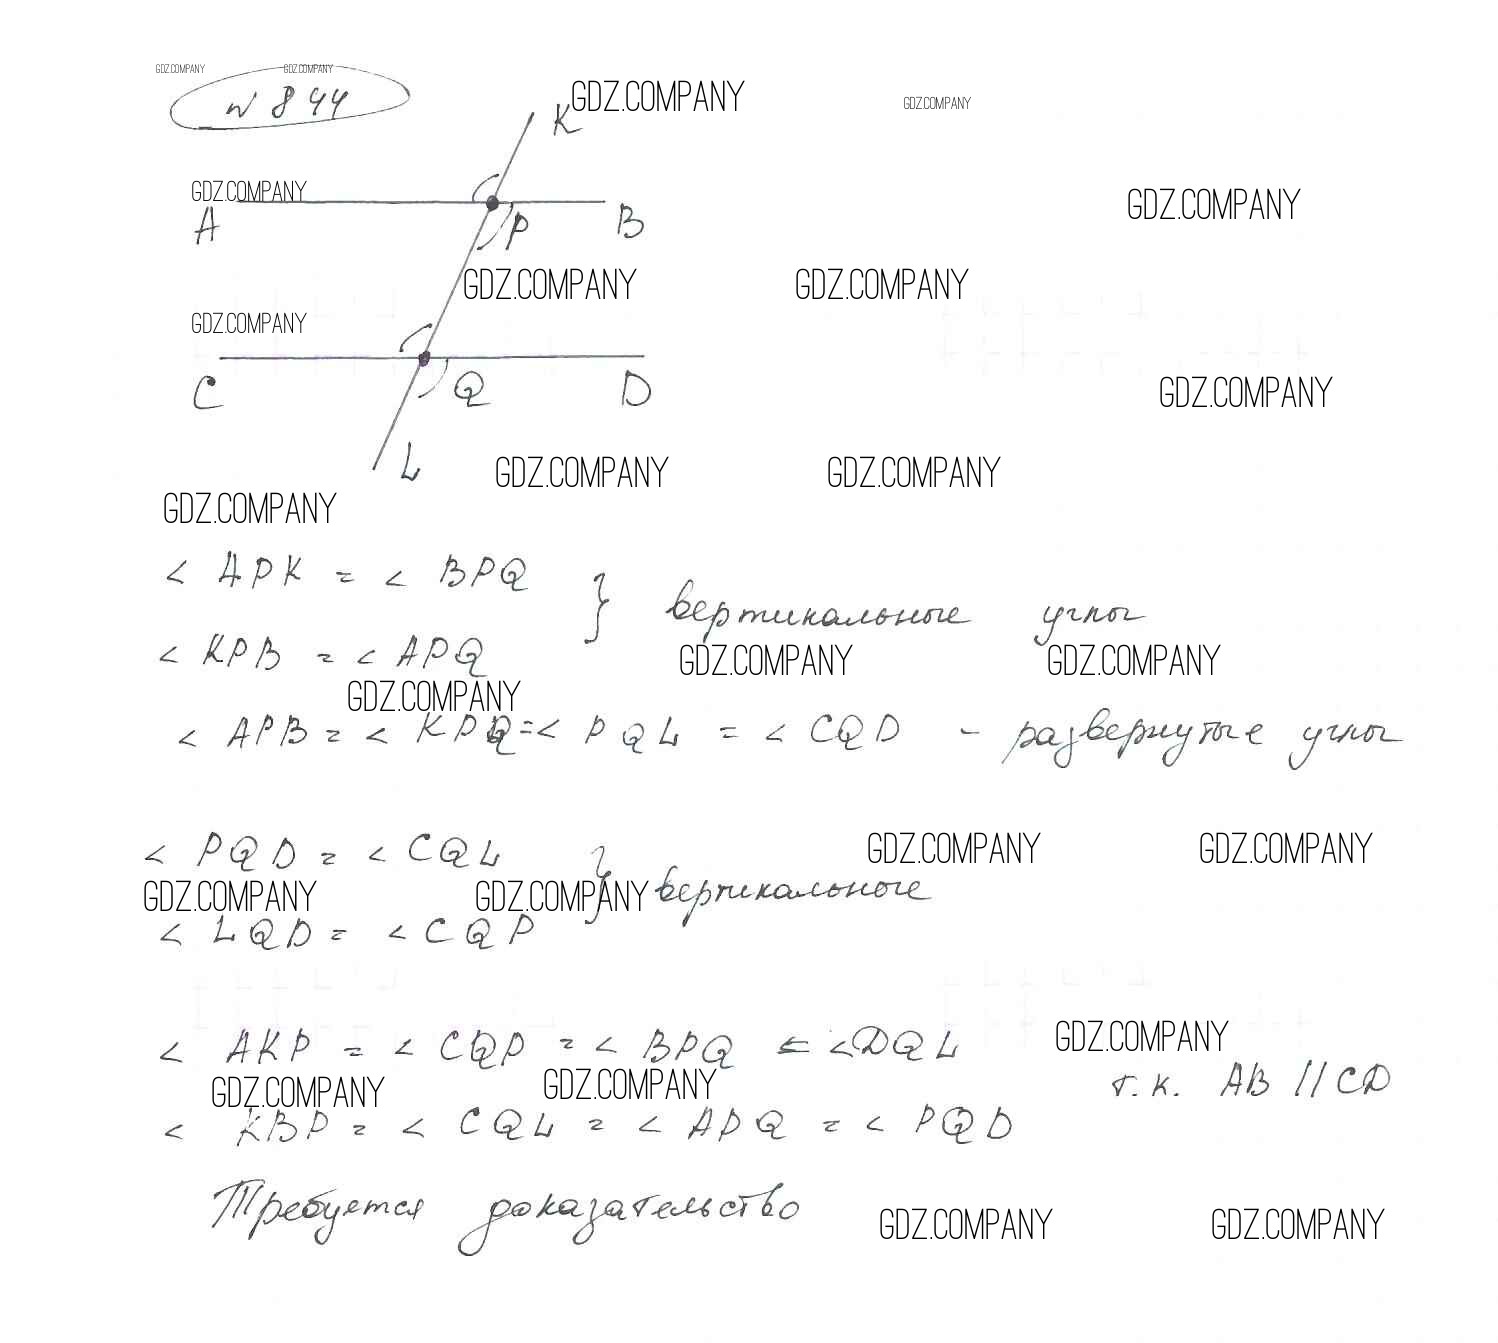 GDZ.COMPANY GDZ.COMPANY
№ 844
GDZ.COMPANY GDZ.COMPANY
K
GDZ.COMPANY GDZ.COMPANY
A P B
GDZ.COMPANY GDZ.COMPANY
GDZ.COMPANY
C Q D GDZ.COMPANY
L GDZ.COMPANY GDZ.COMPANY
GDZ.COMPANY
< APK = < BPQ
} вертикальные углы
< KPB = < APQ GDZ.COMPANY GDZ.COMPANY
GDZ.COMPANY
< APB = < KPQ = < PQL = < CQD - развернутые углы
< PQD = < CQL GDZ.COMPANY GDZ.COMPANY
GDZ.COMPANY GDZ.COMPANY } вертикальные
< LQD = < CQP
< AKP = < CQP = < BPQ = < DQL GDZ.COMPANY
GDZ.COMPANY GDZ.COMPANY т.к. AB // CD
< KBP = < CQL = < APQ = < PQD
Требуется доказательство
GDZ.COMPANY GDZ.COMPANY